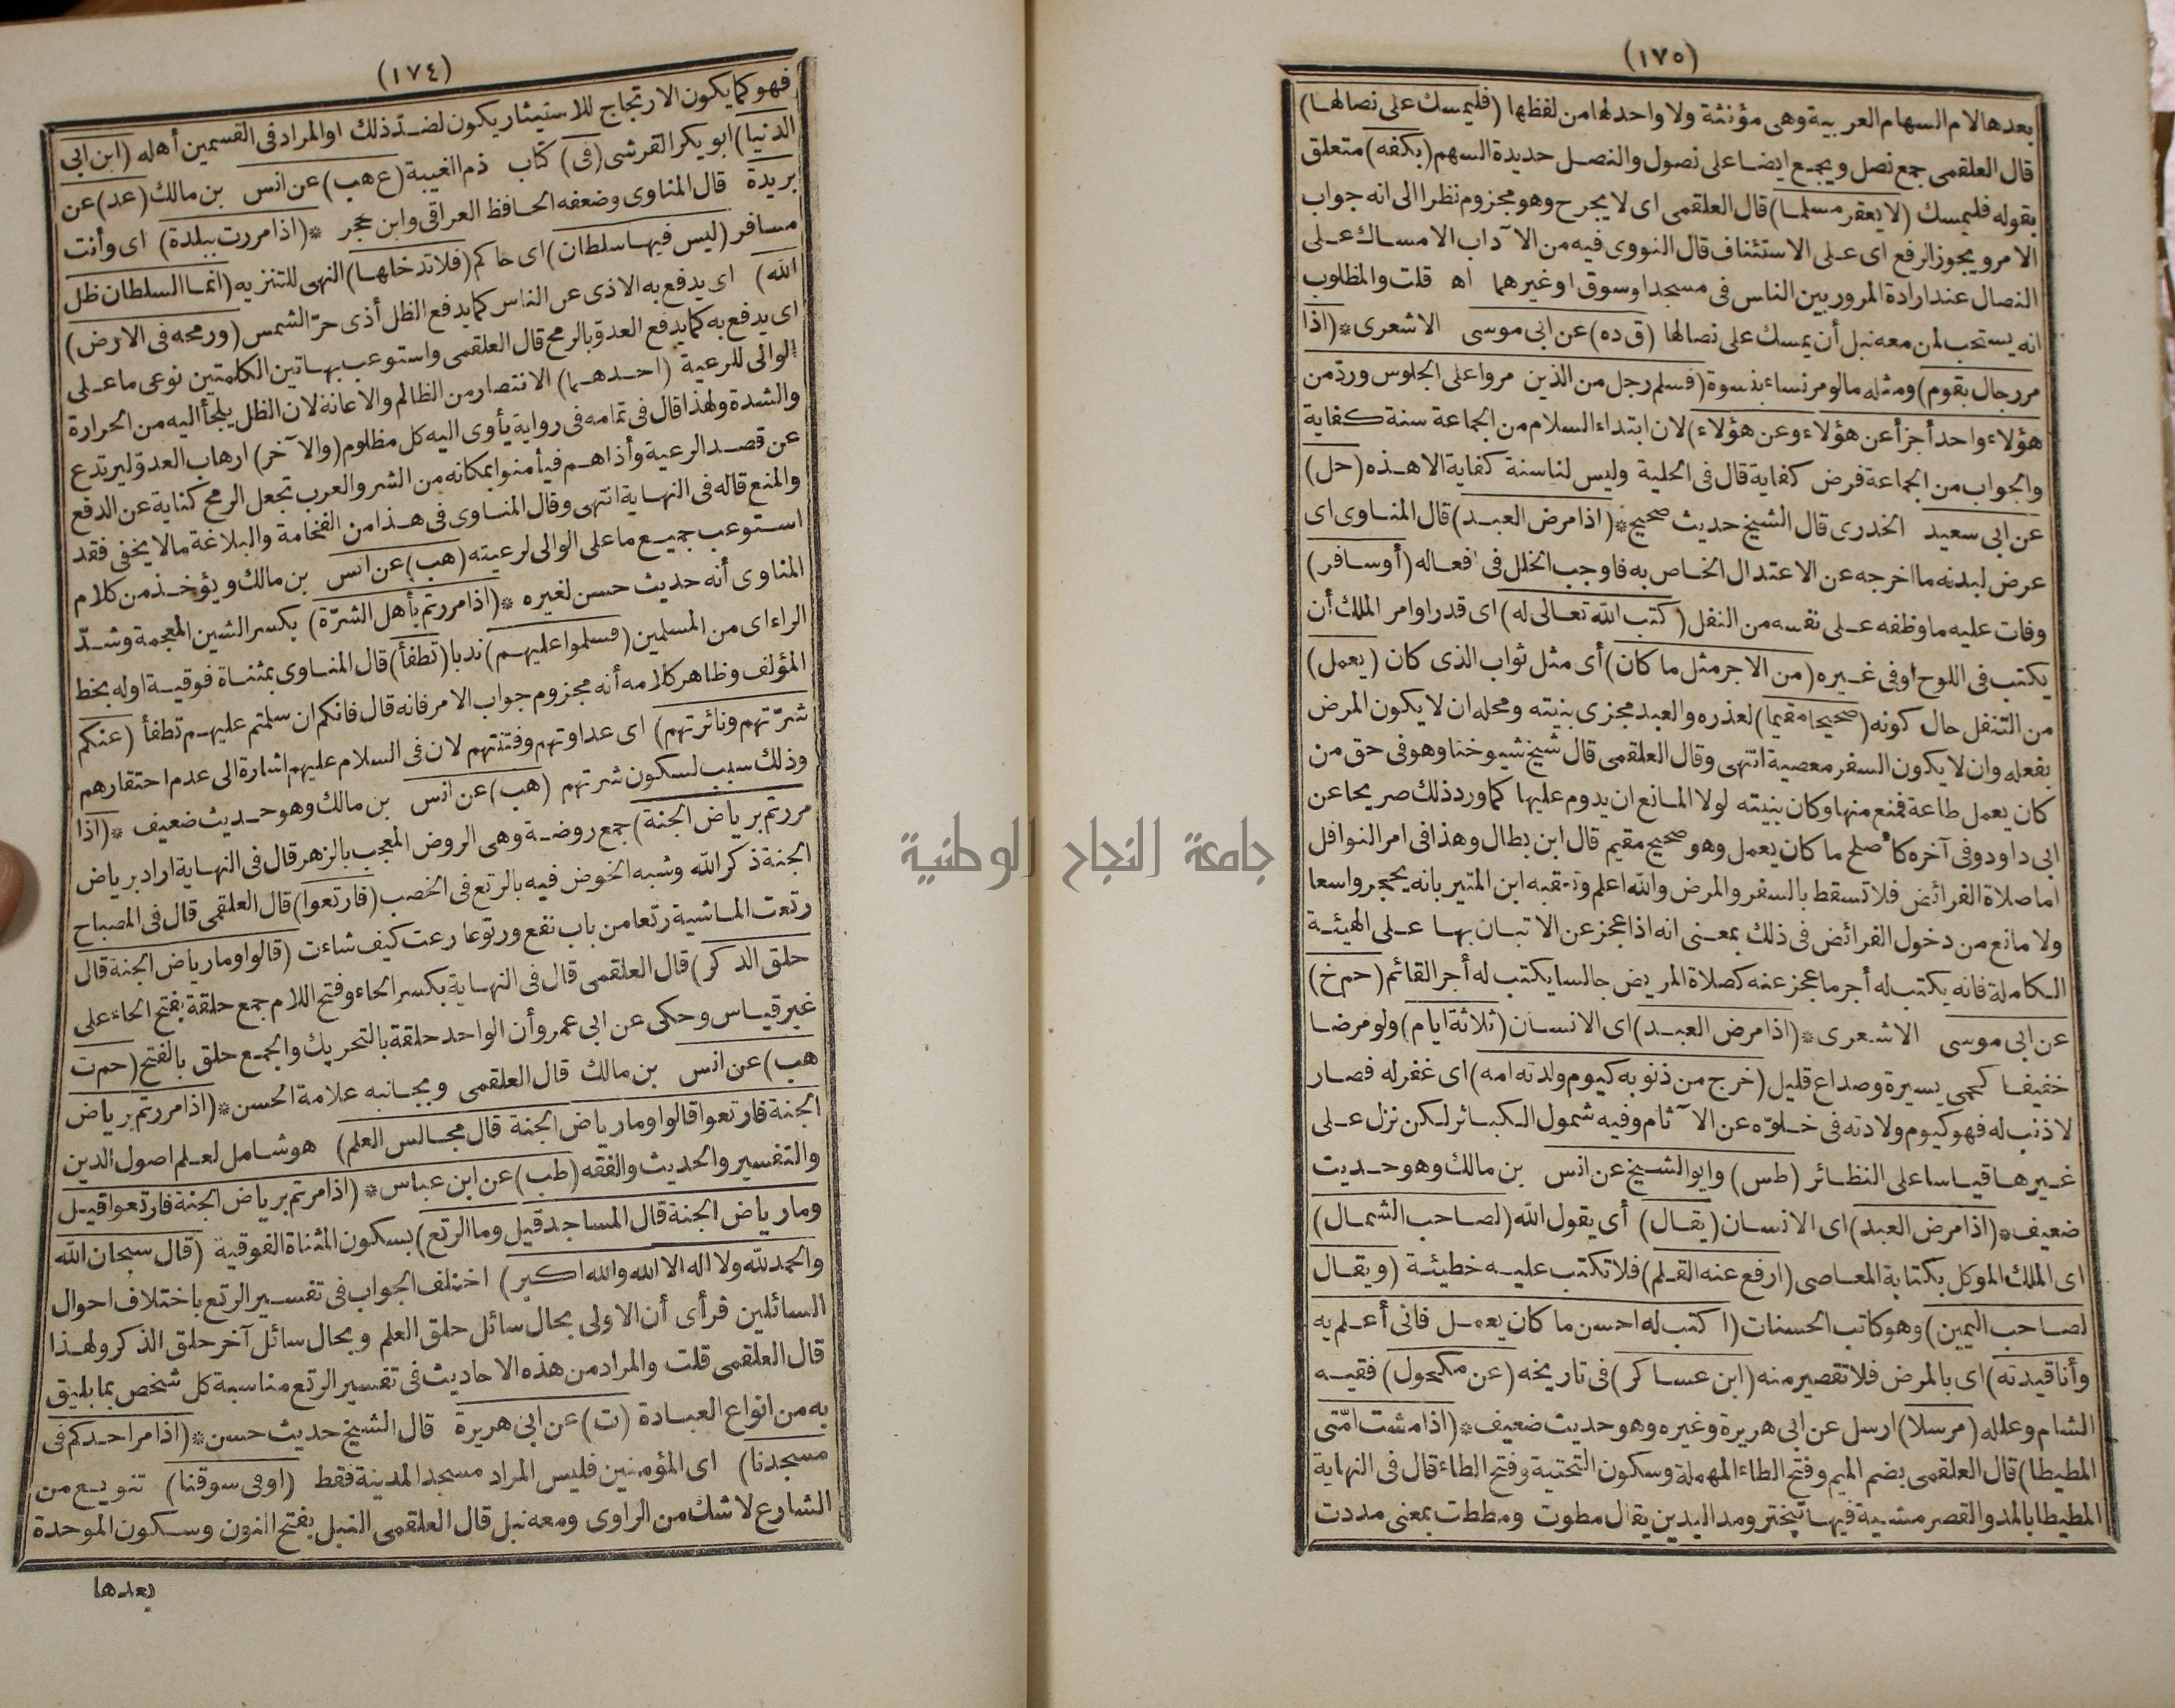 (١٧٤)
فهو كما يكون الارتجاج للاستيثار يكون لضدّ ذلك او المراد فى القسمين أهله (ابن ابى
الدنيا) ابو بكر القرشى (فى) كتاب ذم الغيبة (ع هب) عن انس بن مالك (عد) عن
بريدة قال المناوى وضعفه الحافظ العراقى وابن حجر * (اذا مررت ببلدة) اى وأنت
مسافر (ليس فيها سلطان) اى حاكم (فلا تدخلها) النهى للتنزيه (انما السلطان ظل
الله) اى يدفع به الاذى عن الناس كما يدفع الظل أذى حرّ الشمس (ورمحه فى الارض)
اى يدفع به كما يدفع العدوّ بالرمح قال العلقمى واستوعب بهاتين الكلمتين نوعى ما على
الوالى للرعية (احدهما) الانتصار من الظالم والاعانة لان الظل يلجأ اليه من الحرارة
والشدة ولهذا قال فى تمامه فى رواية يأوى اليه كل مظلوم (والآخر) ارهاب العدوّ ليرتدع
عن قصد الرعية وأذاهم فيأمنوا بمكانه من الشر والعرب تجعل الرمح كناية عن الدفع
والمنع قاله فى النهاية انتهى وقال المناوى فى هذا من الفخامة والبلاغة ما لا يخفى فقد
استوعب جميع ما على الوالى لرعيته (هب) عن انس بن مالك ويؤخذ من كلام
المناوى أنه حديث حسن لغيره * (اذا مررتم بأهل الشرّة) بكسر الشين المعجمة وشدّ
الراء اى من المسلمين (فسلموا عليهم) ندبا (تطفأ) قال المناوى بمثناة فوقية اوله بخط
المؤلف وظاهر كلامه أنه مجزوم جواب الامر فانه قال فانكم ان سلمتم عليهم تطفأ (عنكم
شرّتهم ونائرتهم) اى عداوتهم وفتنتهم لان فى السلام عليهم اشارة الى عدم احتقارهم
وذلك سبب لسكون شرتهم (هب) عن انس بن مالك وهو حديث ضعيف * (اذا
مررتم برياض الجنة) جمع روضة وهى الروض المعجب بالزهر قال فى النهاية اراد برياض
الجنة ذكر الله وشبه الخوض فيه بالرتع فى الخصب (فارتعوا) قال العلقمى قال فى المصباح
رتعت الماشية رتعا من باب نفع ورتوعا رعت كيف شاءت (قالوا وما رياض الجنة قال
حلق الذكر) قال العلقمى قال فى النهاية بكسر الحاء وفتح اللام جمع حلقة بفتح الحاء على
غير قياس وحكى عن ابى عمرو أن الواحد حلقة بالتحريك والجمع حلق بالفتح (حم ت
هب) عن انس بن مالك قال العلقمى وبجانبه علامة الحسن * (اذا مررتم برياض
الجنة فارتعوا قالوا وما رياض الجنة قال مجالس العلم) هو شامل لعلم اصول الدين
والتفسير والحديث والفقه (طب) عن ابن عباس * (اذا مرتم برياض الجنة فارتعوا قيل
وما رياض الجنة قال المساجد قيل وما الرتع) بسكون المثناة الفوقية (قال سبحان الله
والحمد لله ولا اله الا الله والله اكبر) اختلف الجواب فى تفسير الرتع باختلاف احوال
السائلين فرأى أن الاولى بحال سائل حلق العلم وبحال سائل آخر حلق الذكر ولهذا
قال العلقمى قلت والمراد من هذه الاحاديث فى تفسير الرتع مناسبة كل شخص بما يليق
به من انواع العبادة (ت) عن ابى هريرة قال الشيخ حديث حسن * (اذا مر احدكم فى
مسجدنا) اى المؤمنين فليس المراد مسجد المدينة فقط (او فى سوقنا) تنويع من
الشارع لا شك من الراوى ومعه نبل قال العلقمى النبل بفتح النون وسكون الموحدة
بعدها
(١٧٥)
بعدها لام السهام العربية وهى مؤنثة ولا واحد لها من لفظها (فليمسك على نصالها)
قال العلقمى جمع نصل ويجمع ايضا على نصول والنصل حديدة السهم (بكفه) متعلق
بقوله فليمسك (لا يعقر مسلما) قال العلقمى اى لا يجرح وهو مجزوم نظرا الى انه جواب
الامر ويجوز الرفع اى على الاستئناف قال النووى فيه من الآداب الامساك على
النصال عند ارادة المرور بين الناس فى مسجد او سوق او غيرهما اه قلت والمطلوب
انه يستحب لمن معه نبل أن يمسك على نصالها (ق ده) عن ابى موسى الاشعرى * (اذا
مر رجال بقوم) ومثله ما لو مر نساء بنسوة (فسلم رجل من الذين مروا على الجلوس وردّ من
هؤلاء واحد أجزأ عن هؤلاء وعن هؤلاء) لان ابتداء السلام من الجماعة سنة كفاية
والجواب من الجماعة فرض كفاية قال فى الحلية وليس لنا سنة كفاية الا هذه (حل)
عن ابى سعيد الخدرى قال الشيخ حديث صحيح * (اذا مرض العبد) قال المناوى اى
عرض لبدنه ما اخرجه عن الاعتدال الخاص به فاوجب الخلل فى افعاله (أوسافر)
وفات عليه ما وظفه على نفسه من النفل (كتب الله تعالى له) اى قدر او امر الملك أن
يكتب فى اللوح او فى غيره (من الاجر مثل ما كان) أى مثل ثواب الذى كان (يعمل)
من التنفل حال كونه (صحيحا مقيما) لعذره والعبد مجزى بنيته ومحله ان لا يكون المرض
بفعله وان لا يكون السفر معصية انتهى وقال العلقمى قال شيخ شيوخنا وهو فى حق من
كان يعمل طاعة فمنع منها وكان بنيته لولا المانع ان يدوم عليها كما ورد ذلك صريحا عن
ابى داود وفى آخره كأصلح ما كان يعمل وهو صحيح مقيم قال ابن بطال وهذا فى امر النوافل
اما صلاة الفرائض فلا تسقط بالسفر والمرض والله اعلم وتعقبه ابن المنير بانه يحجر واسعا
ولا مانع من دخول الفرائض فى ذلك بمعنى انه اذا عجز عن الاتيان بها على الهيئة
الكاملة فانه يكتب له أجر ما عجز عنه كصلاة المريض جالسا يكتب له أجر القائم (حم خ)
عن ابى موسى الاشعرى * (اذا مرض العبد) اى الانسان (ثلاثة ايام) ولو مرضا
خفيفا كحمى يسيرة وصداع قليل (خرج من ذنوبه كيوم ولدته امه) اى غفر له فصار
لا ذنب له فهو كيوم ولادته فى خلوّه عن الآثام وفيه شمول الكبائر لكن نزل على
غيرها قياسا على النظائر (طس) وابو الشيخ عن انس بن مالك وهو حديث
ضعيف * (اذا مرض العبد) اى الانسان (يقال) أى يقول الله (لصاحب الشمال)
اى الملك الموكل بكتابة المعاصى (ارفع عنه القلم) فلا تكتب عليه خطيئة (ويقال
لصاحب اليمين) وهو كاتب الحسنات (اكتب له احسن ما كان يعمل فانى أعلم به
وأنا قيدته) اى بالمرض فلا تقصير منه (ابن عساكر) فى تاريخه (عن مكحول) فقيه
الشام وعالمه (مرسلا) ارسل عن ابى هريرة وغيره وهو حديث ضعيف * (اذا مشت امّتى
المطيطا) قال العلقمى بضم الميم وفتح الطاء المهملة وسكون التحتية وفتح الطاء قال فى النهاية
المطيطا بالمد والقصر مشية فيها تبختر ومد اليدين يقال مطوت ومططت بمعنى مددت
جامعة النجاح الوطنية